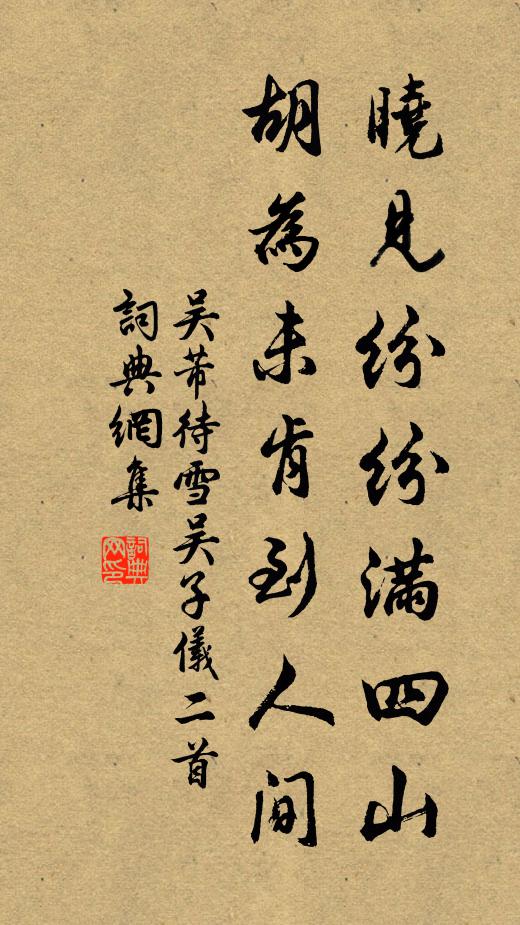 曉見紛紛滿四山
胡為未肯到人間
吴芾待雪吴子儀二首
詞典網集
詞典网印